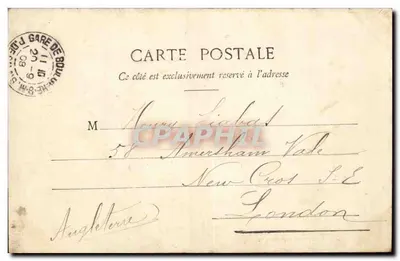 GARE DE BOULOGNE-S-M
11 45
20 -9
09
CARTE POSTALE
Ce côté est exclusivement reservé à l'adresse
M Henry Liabas
58 Amersham Vale
New Cros S-E
London
Angleterre